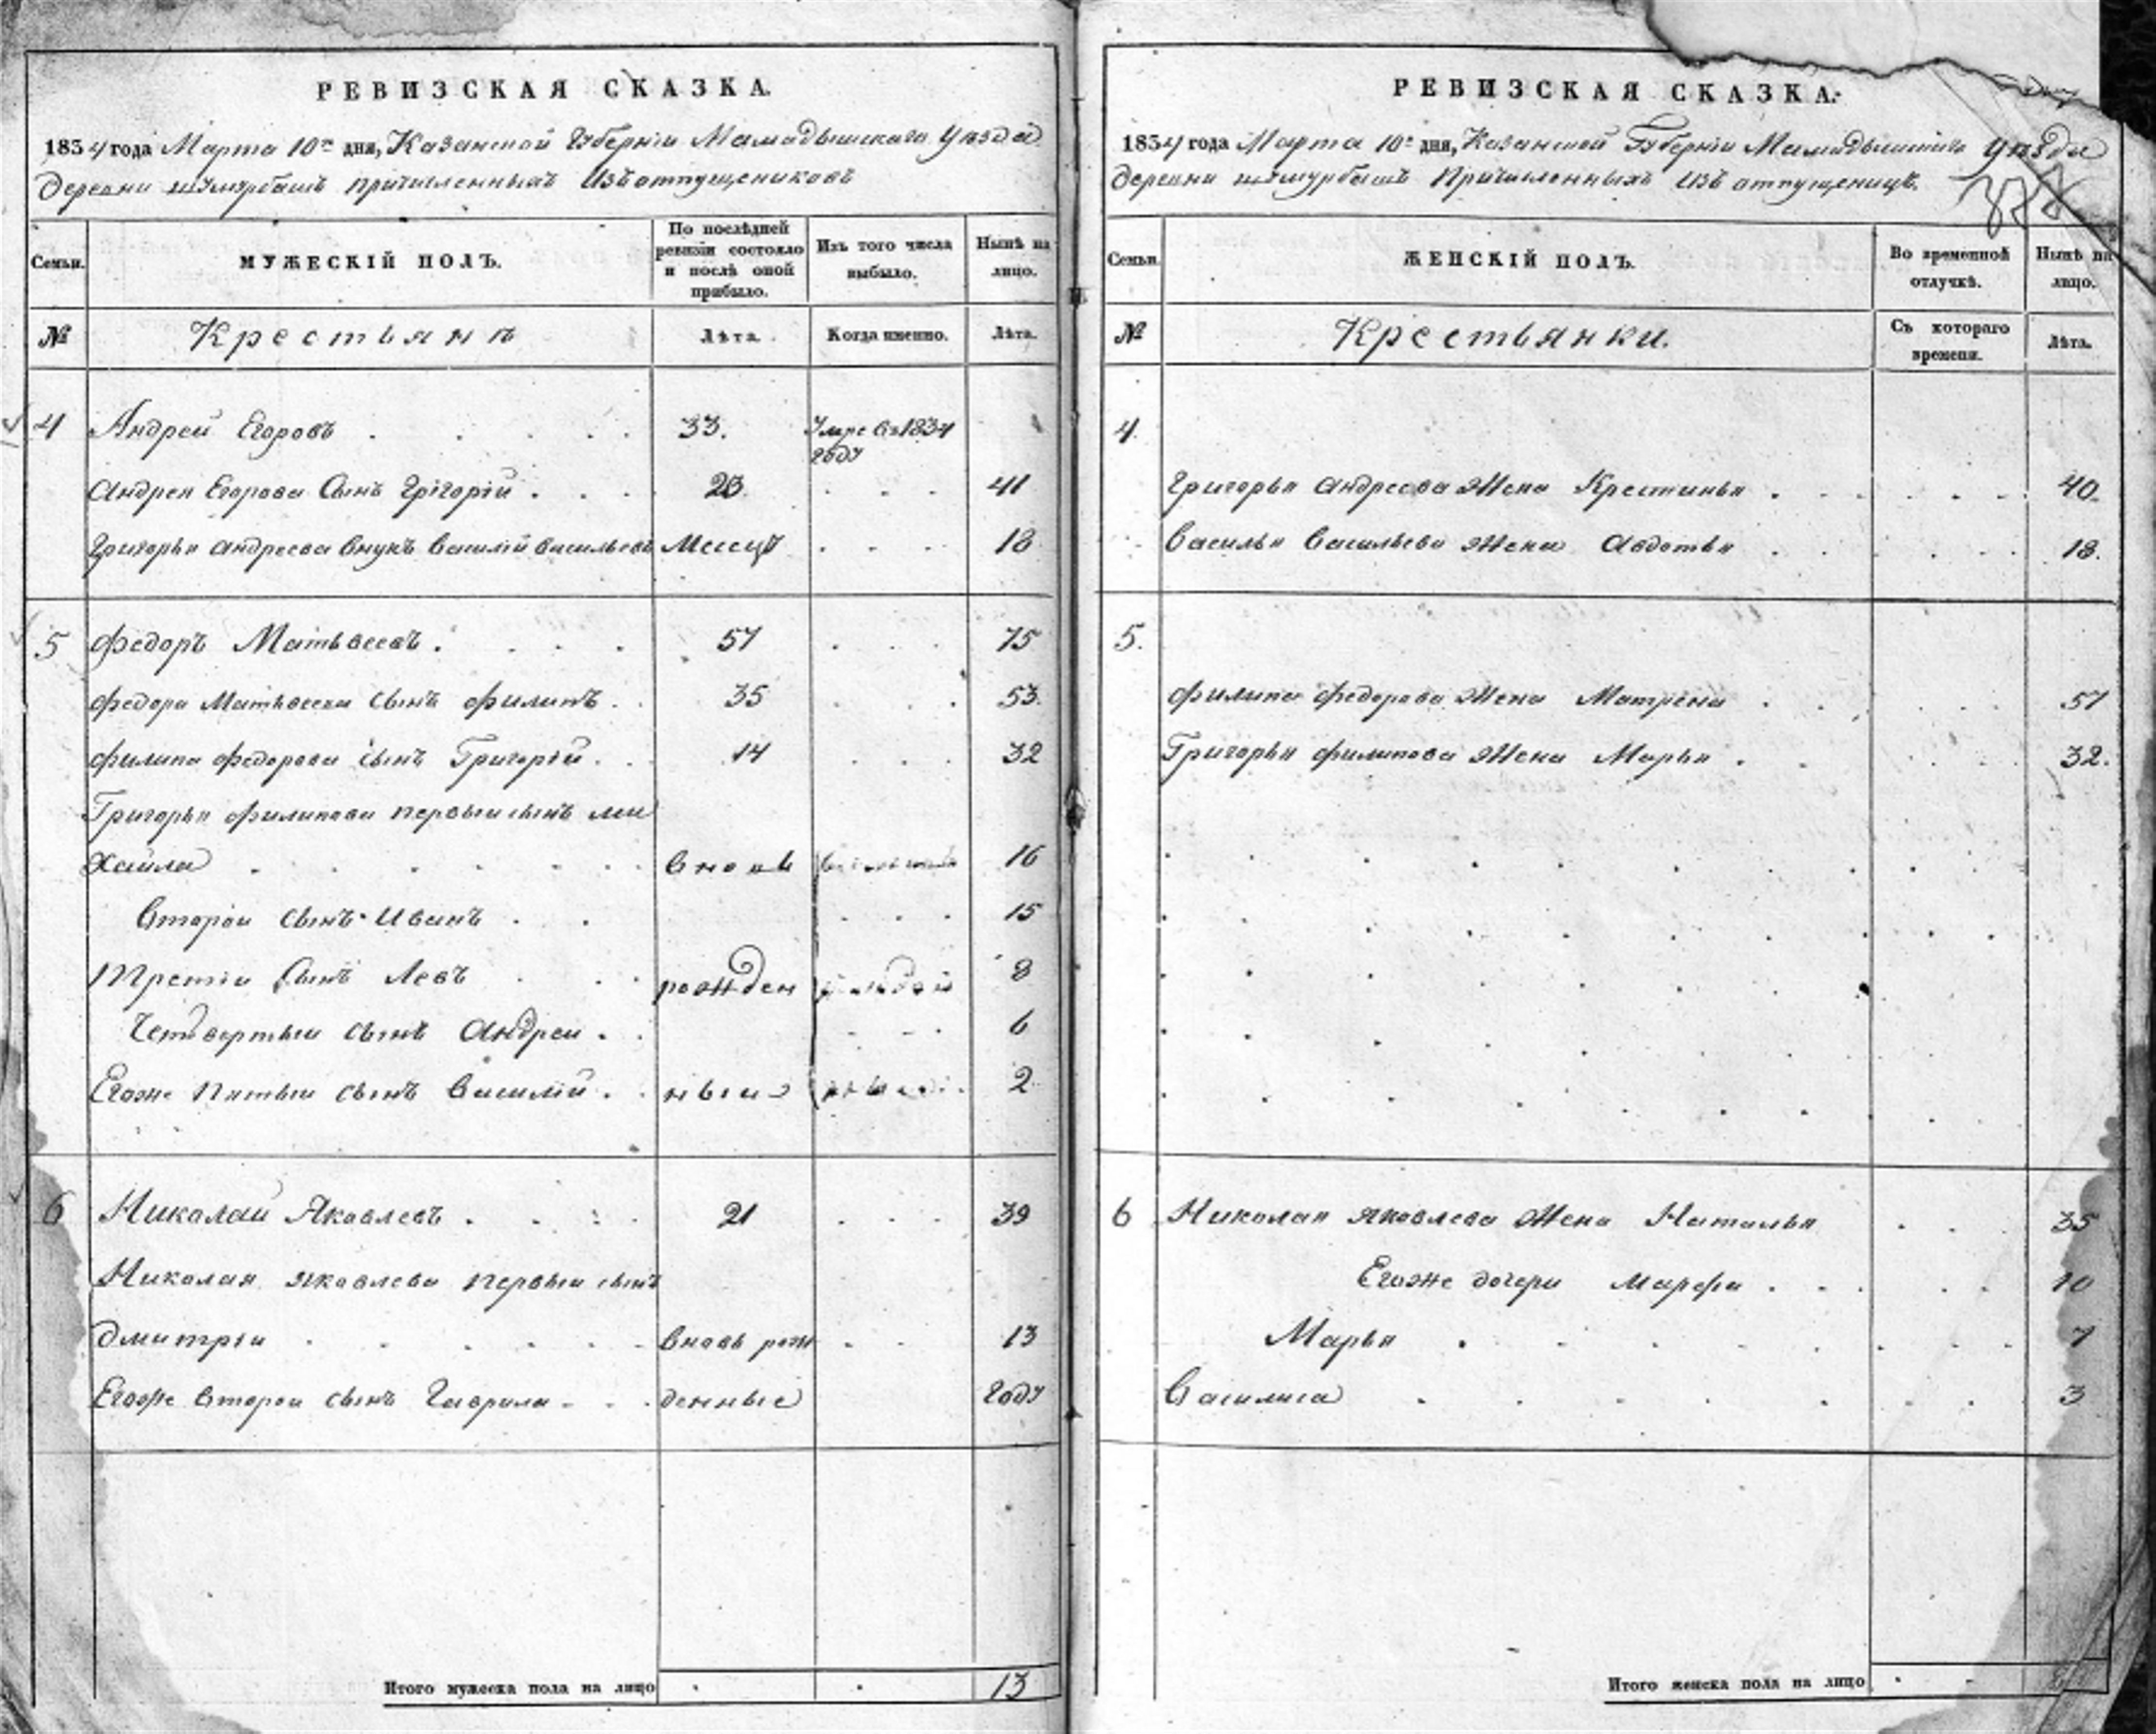 РЕВИЗСКАЯ СКАЗКА.
1854 года Марта 10го дня, Казанской Губерніи Мамадышскаго Уѣзда
деревни Шемурбашъ причисленныхъ изъ отпущениковъ
Семьи.
МУЖЕСКІЙ ПОЛЪ.
По послѣдней ревизіи состояло и послѣ оной прибыло.
Изъ того числа выбыло.
Нынѣ на лицо.
№
Крестьянъ
Лѣта.
Когда именно.
Лѣта.
4 Андрей Егоровъ 33. Умре въ 1834 году
Андрея Егорова Сынъ Григорій 23 41
Григорья Андреева Внукъ Василій Васильевъ Месецъ 18
5 Федоръ Матьвеевъ 57 75
Федора Матьвеева сынъ Филипъ 35 53
Филипа Федорова сынъ Григорій 14 32
Григорья Филипова первыи сынъ Ми
хайла вновь 16
Второи сынъ Иванъ 15
Третіи Сынъ Левъ рожден 8
Четвертыи сынъ Андреи 6
Егоже Пятыи сынъ Василій ныи 2
6 Николаи Яковлевъ 21 39
Николая Яковлева первыи сынъ
Дмитріи вновь рож 13
Егоже второи сынъ Гаврила денные году
Итого мужеска пола на лицо 13
РЕВИЗСКАЯ СКАЗКА.
1854 года Марта 10го дня, Казанской Губерніи Мамадышскаго Уѣзда
деревни Шемурбашъ Причисленныхъ изъ отпущеницъ.
Семьи.
ЖЕНСКІЙ ПОЛЪ.
Во временной отлучкѣ.
Нынѣ на лицо.
№
Крестьянки.
Съ котораго времени.
Лѣта.
4.
Григорья Андреева Жена Крестинья 40.
Василья Васильева Жена Авдотья 18.
5.
Филипа Федорова Жена Матрена 57
Григорья Филипова Жена Марья 32.
6 Николая Яковлева Жена Наталья 35
Егоже дочери Марфа 10
Марья 7
Василиса 3
Итого женска пола на лицо